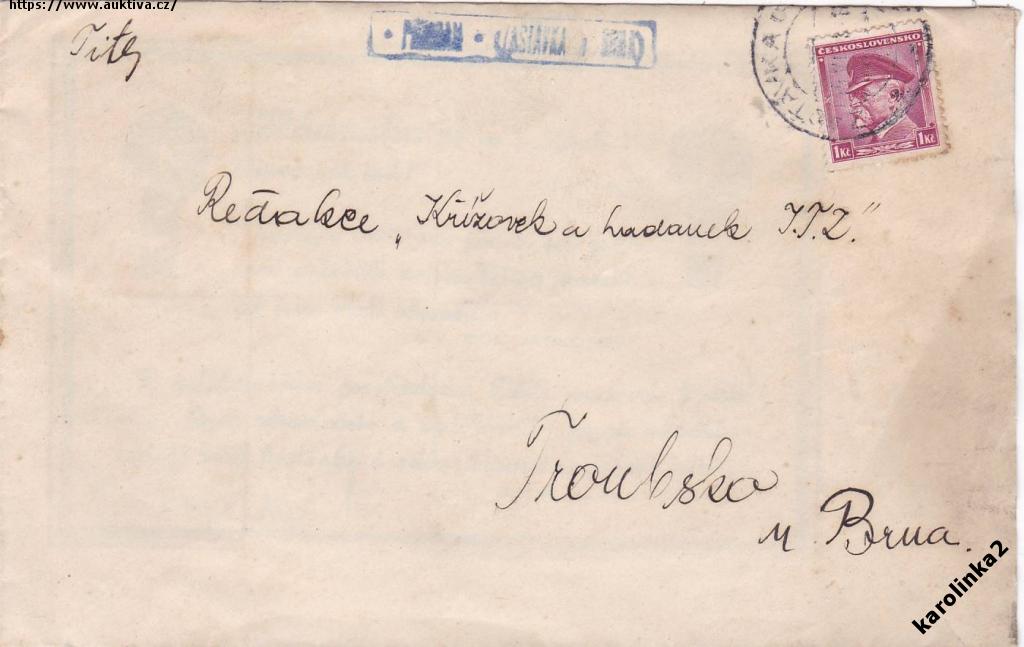 https://www.auktiva.cz/
Titz
• PŘÍBRAM • ZASTÁVKA
ČESKOSLOVENSKO
1Kč 1Kč
Redakce „Křížovek a hadanek J.T.Z."
Troubsko
u Brna.
karolinka2